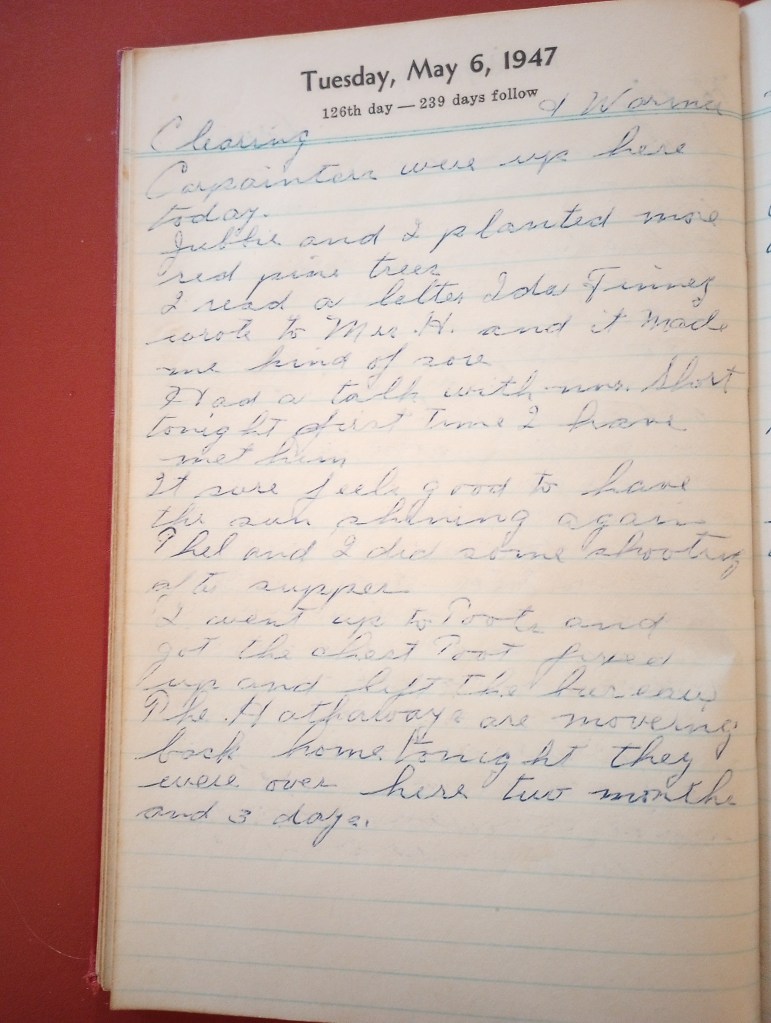 Tuesday, May 6, 1947
126th day — 239 days follow
Clearing & Warmer
Carpainters were up here
today.
Jubbie and I planted more
red pine trees
I read a letter Ida Finney
wrote to Mrs H. and it made
me kind of sore
Had a talk with mr. Short
tonight first time I have
met him
It sure feels good to have
the sun shining again
Phel and I did some shooting
after supper
I went up to Poots and
got the chest Poot fixed
up and left the bureau
The Hathaways are movering
back home tonight they
were over here two months
and 3 days.